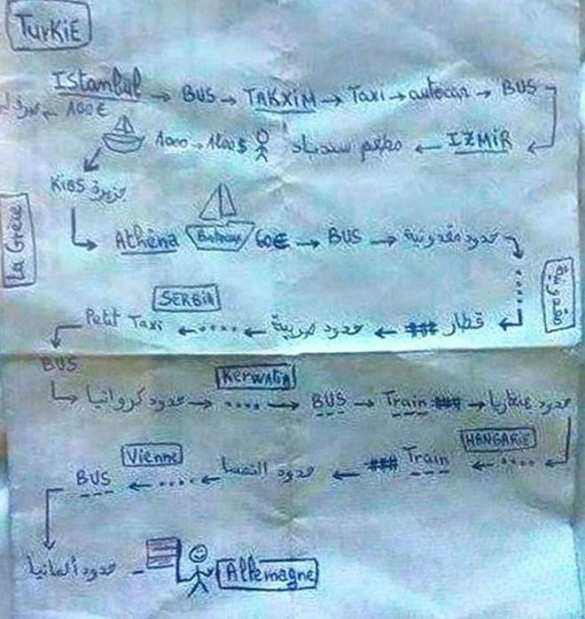 TURKIE
IStanbul → BUS → TAKXIM → Taxi → autocar → BUS
100€
1000 → 1200$ مطعم سندباد ← IZMIR
KIOS جزيرة
La Grèce
Athéna 60€ → BUS → حدود مقدونية
مقدونية
SERBIA
Petit Taxi ← .... ← حدود صربية ← ### قطار
BUS
KERWATIA
حدود كرواتيا → .... → BUS → Train ### → حدود هنغاريا
HANGARIE
Vienne
BUS ← .... ← حدود النمسا ← ### Train ← ....
حدود ألمانيا - Allemagne